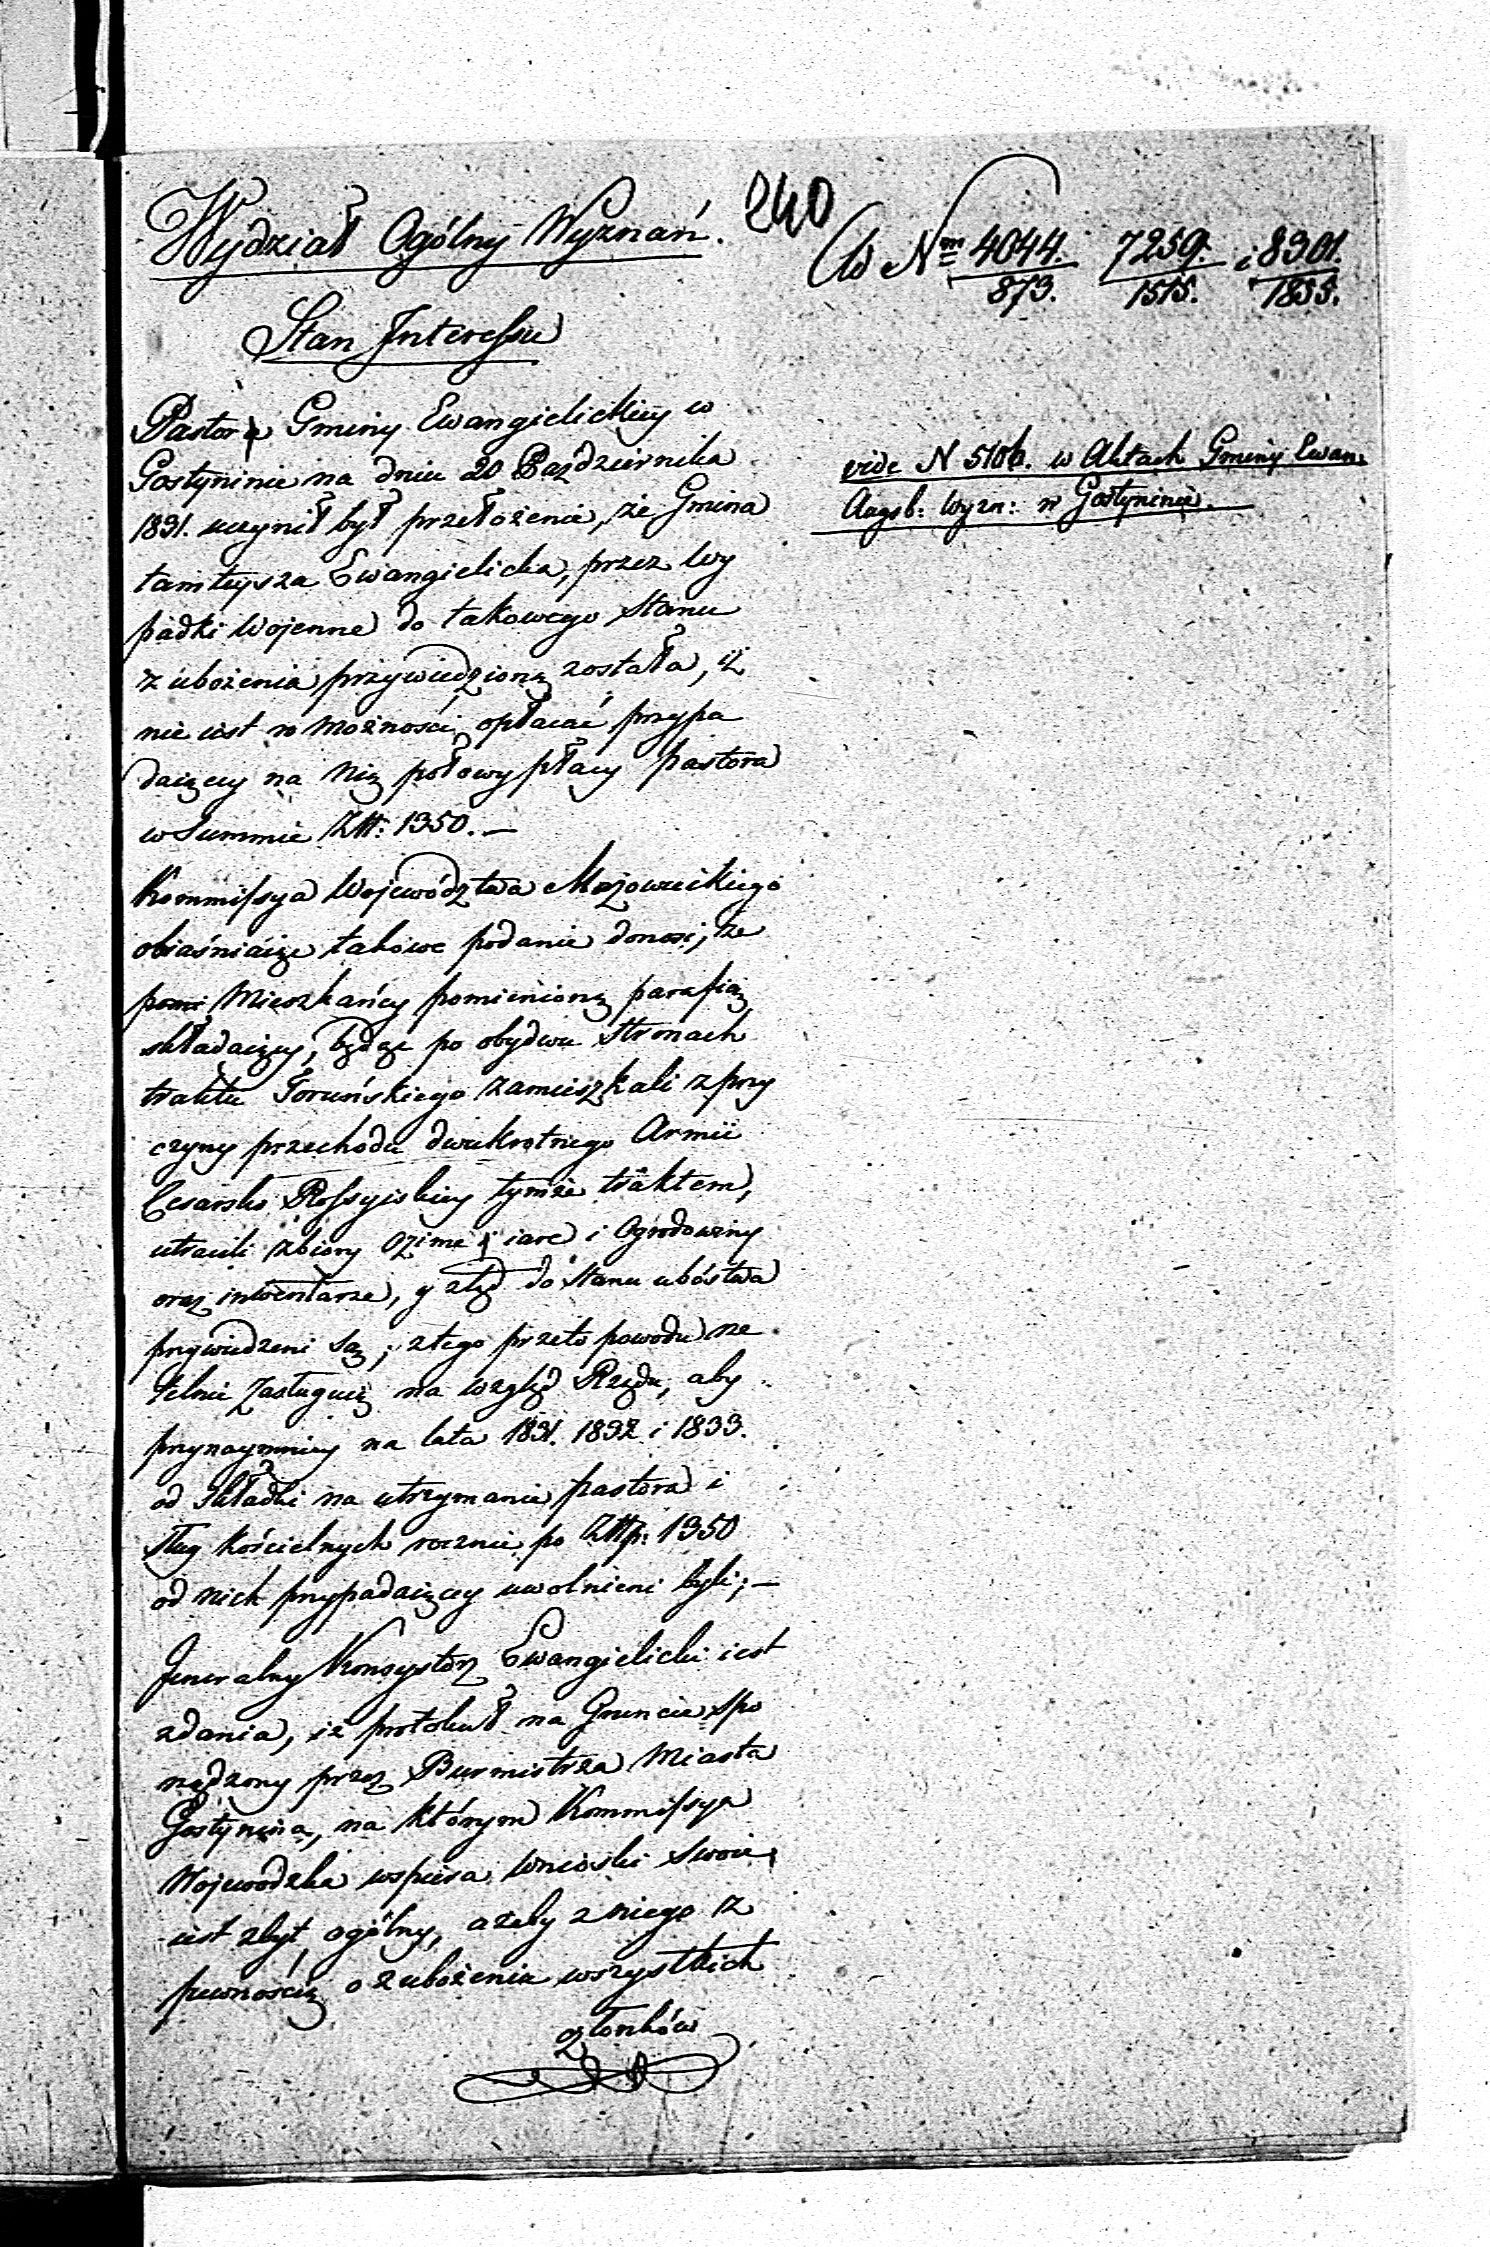 240
Wydział Ogólny Wyznań.
Ad Nm 4044. 7259. i 8301.
873. 1515. 1855.
Stan Interessu
vide N 5106. w Aktach Gminy Ewan.
Augsb: Wyzn: w Gostyninie.
Pastor Gminy Ewangielickiey w
Gostyninie na dniu 20 Października
1831. uczynił był przełożenie, że Gmina
tamteysza Ewangielicka, przez wy
padki Wojenne do takowego Stanu
zubożenia przywiedzioną została, iż
nie iest w możności opłacać przypa
daiącey na Nią połowy płacy pastora
w Summie Złł: 1350.—
Kommissya Województwa Mazowieckiego
obiaśniaiąc takowe podanie donosi, że
Mieszkańcy pomienioną parafią
składaiący, będąc po obydwu Stronach
traktu Toruńskiego zamieszkali z przy
czyny przechodu dwukrotnego Armii
Cesarsko Rossyiskiey tymże traktem,
utracili zbiory Ozime i iare i Ogrodowiny
oraz inwentarze, y ztąd do Stanu ubóstwa
przywiedzeni są; z tego przeto powodu rze
telnie Zasługuią na wzgląd Rządu, aby
przynaymniey na lata 1831. 1832 i 1833.
od Składki na utrzymanie pastora i
sług kościelnych rocznie po Złłp: 1350
od nich przypadaiącey uwolnieni byli;—
Jeneralny Konsystorz Ewangielicki iest
zdania, iż protokuł na Gruncie spo
rządzony przez Burmistrza Miasta
Gostynina, na którym Kommissya
Wojewodzka wspiera wnioski swoie,
iest zbyt ogólny, ażeby z niego z
pewnością o zubożeniu wszystkich
Członków